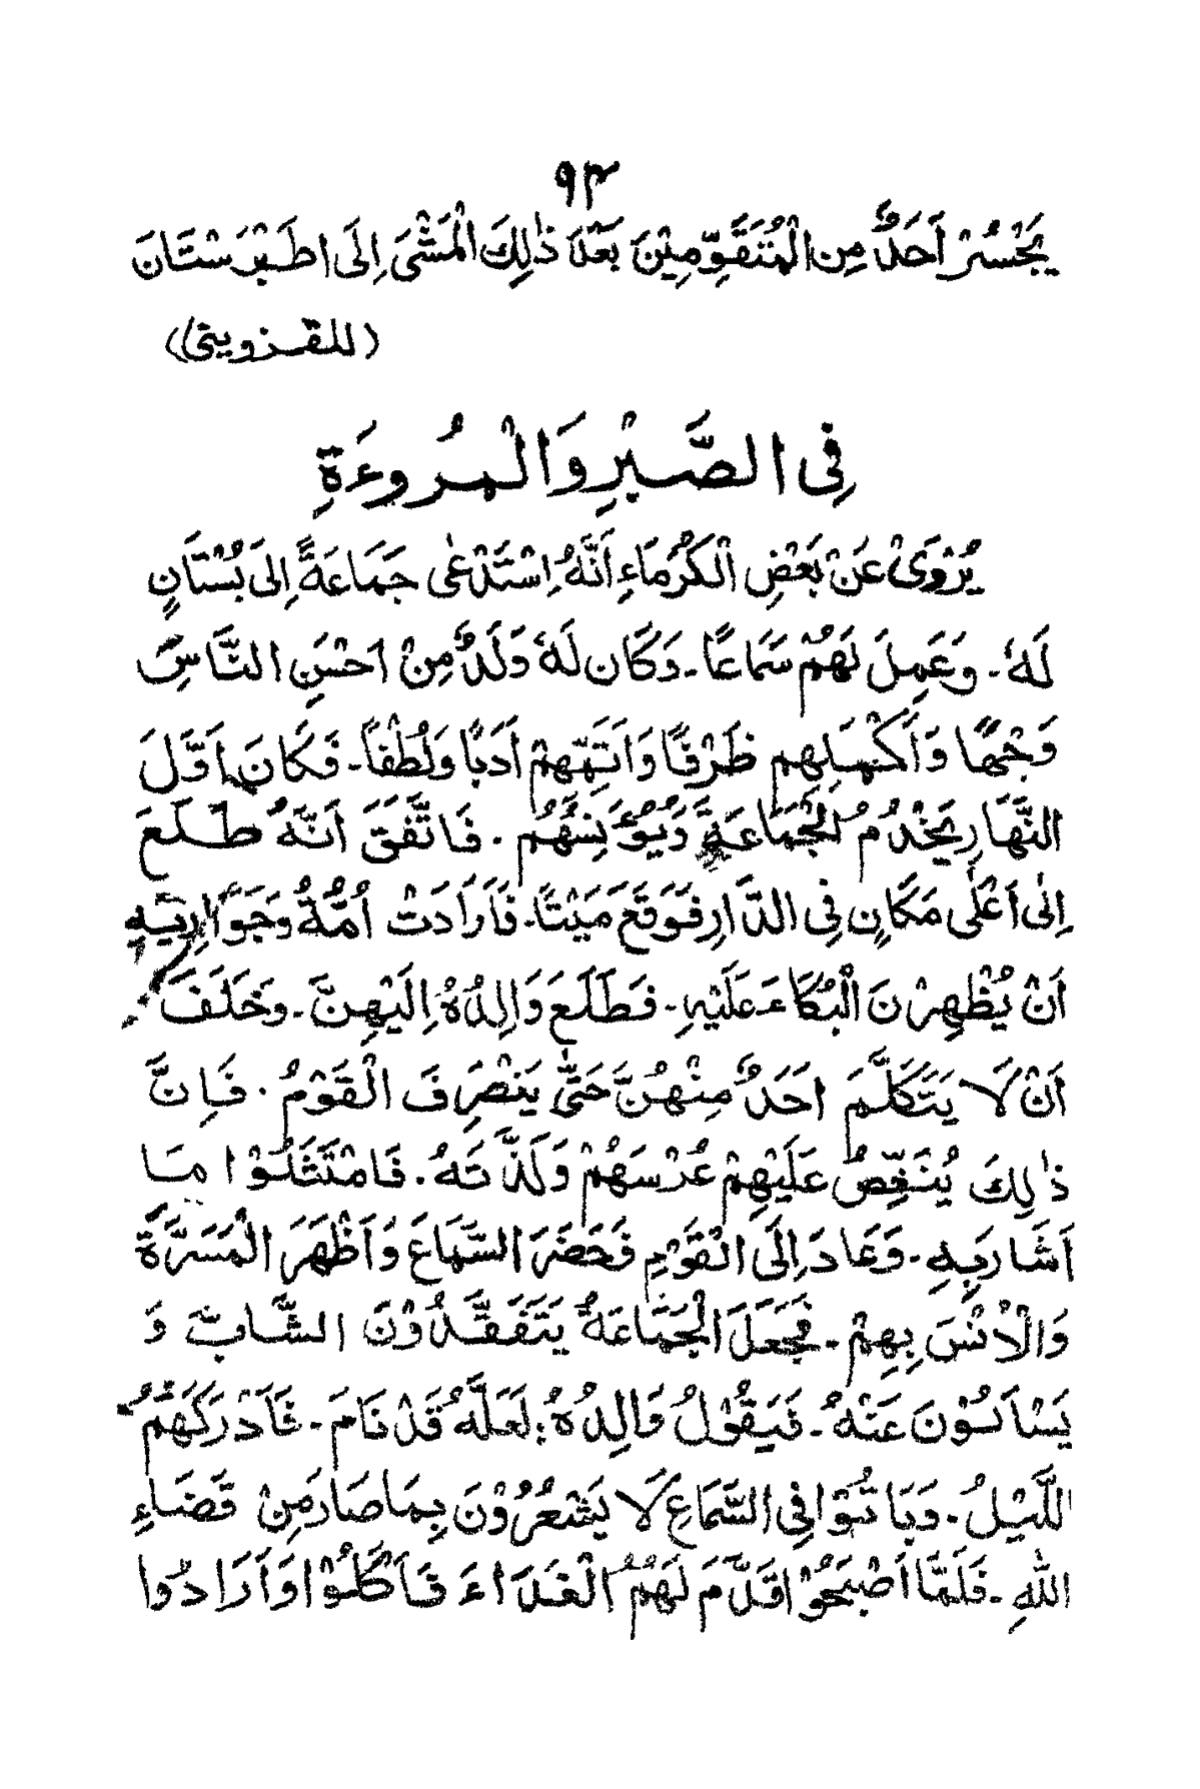 ٩٣
يَجْسُرْ اَحَدٌ مِن الْمُتَقَوِّمِيْنَ بَعْدَ ذٰلِكَ الْمَشْىَ اِلَى اطَبْرَسْتَانَ
(للقزوينى)
فِى الصَّبْرِ وَالْمُروءَةِ
يُرْوَىْ عَنْ بَعْضِ الْكُرَمَاءِ اَنَّهُ اِسْتَدْعٰى جَمَاعَةً اِلىَ بُسْتَانٍ
لَهُ - وَعَمِلَ لَهُمْ سَمَاعًا - وَكَان لَهُ وَلَدٌ مِنْ اَحْسَنِ النَّاسِ
وَجْهًا وَاَكْمَلِهِم ظَرْفًا وَاَتَمِّهِمْ اَدَبًا وَلُطْفاً - فَكَانَ اَوَّلَ
النَّهَارِ يَخْدُمُ الْجَمَاعَةَ وَيُؤَنِسُهُم . فَاتَّفَقَ اَنَّهُ طَلَعَ
اِلٰى اَعْلٰى مَكَانٍ فِى الدَّارِ فَوَقَعَ مَيْتًا - فَاَرَادَتْ اُمُّهُ وَجَوَارِيَهِ
اَنْ يُظْهِرْنَ الْبُكَاءَ عَلَيْهِ - فَطَلَعَ وَالِدُهُ اِلَيْهِنَّ - وَخَلَفَ
اَنْ لَا يَتَكَلَّمَ اَحَدٌ مِنْهُنَّ حَتّٰى يَنْصَرِفَ الْقَوْمُ . فَاِنَّ
ذٰلِكَ يُنَغِّصُ عَلَيْهِمْ عُرْسَهُمْ وَلَذَّتَهُ . فَامْتَثَلُوْا مَا
اَشَارَبِهِ - وَعَادَ اِلَى الْقَوْمِ فَحَضَرَ السَّمَاعَ وَاَظْهَرَ الْمَسَرَّةَ
وَالْاُنْسَ بِهِمْ - فَجَعَلَ الْجَمَاعَةُ يَتَفَقَّدُوْنَ الشَّابَّ وَ
يَسْاَلُوْنَ عَنْهُ - فَيَقُوْلُ وَالِدُهُ : لَعَلَّهُ قَدْ نَامَ - فَاَدْرَكَهُمُ
اللَّيْلُ - وَبَاتُوْا فِى السَّمَاعِ لَا يَشْعُرُوْنَ بِمَا صَارَ مِنْ قَضَاءِ
اللهِ - فَلَمَّا اَصْبَحُوْا قَدَّمَ لَهُمُ الْغَدَاءَ فَاَكَلُوْا وَاَرَادُوا